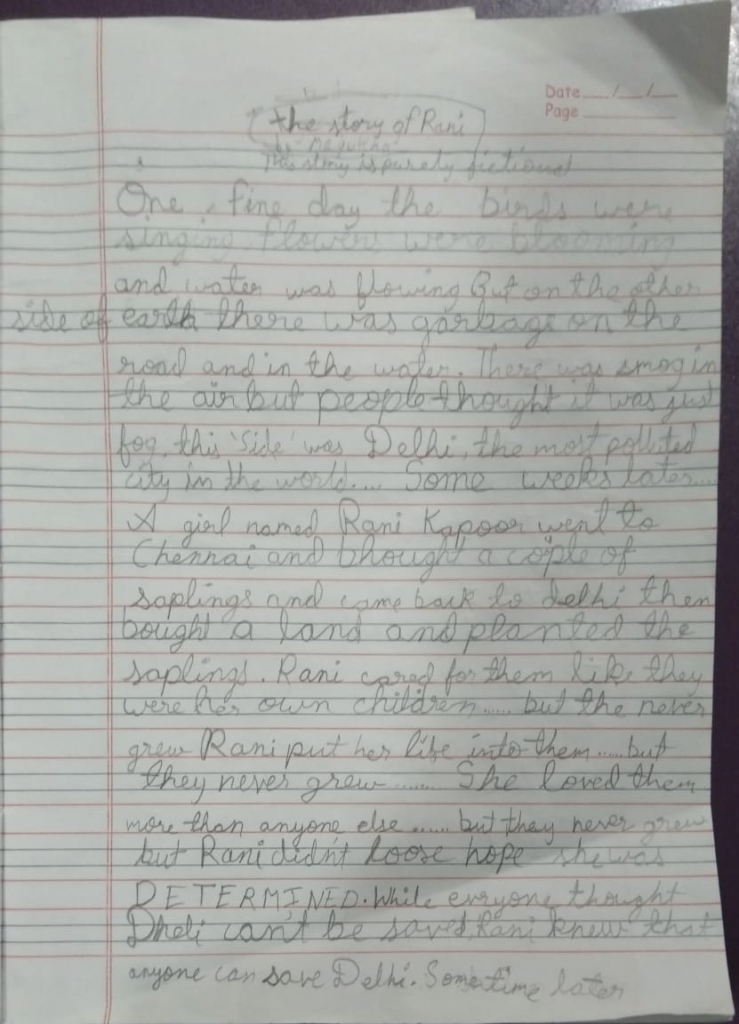 Date __/__/__
Page
the story of Rani
This story is purely fictional
One, fine day the birds were
singing, flowers were blooming
and water was flowing But on the other
side of earth there was garbage on the
road and in the water. There was smog in
the air but people thought it was just
fog, this 'side' was Delhi, the most polluted
city in the world.... Some weeks later....
A girl named Rani Kapoor went to
Chennai and bhought a cople of
saplings and came back to delhi then
bought a land and planted the
saplings. Rani cared for them like they
were her own children ..... but the never
grew Rani put her life into them ..... but
they never grew ....... She loved them
more than anyone else ...... but they never grew
but Rani didn't loose hope she was
DETERMINED. While everyone thought
Dheli can't be saved, Rani knew that
anyone can save Delhi. Some time later